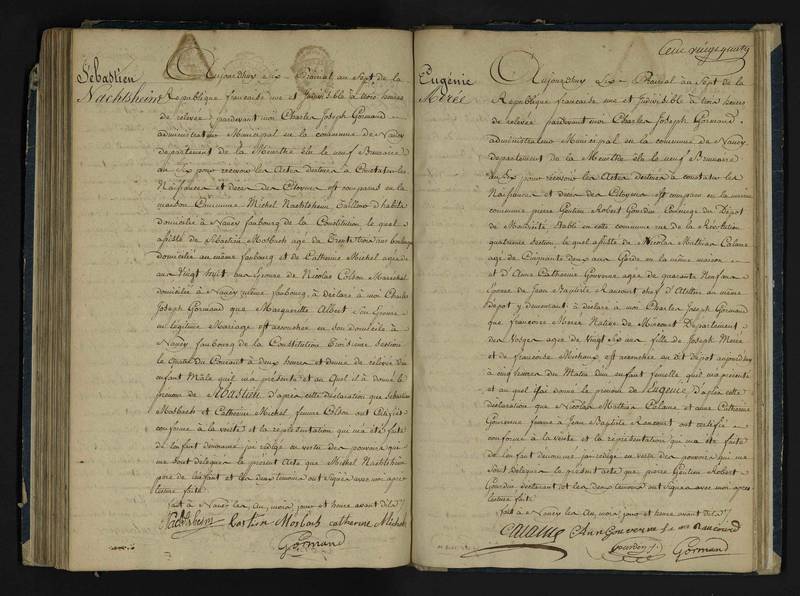 Sébastien
Nachtsheim
Aujourdhuy Six Prairial an Sept de la
Republique francaise une et Indivisible à trois heures
de relevée pardevant moi Charles Joseph Gormand
administrateur Municipal en la commune de Nancy
departement de la Meurthe élu le neuf Brumaire
an Six pour recevoir les Actes destinés à Constater les
Naissances et decès des Citoyens est comparu en la
maison Commune Michel Nachtsheim Tailleur d'habits
domicilié à Nancy faubourg de la Constitution le quel
assisté de Sebastien Mosbach age de Trente trois ans boulanger
domicilié au même faubourg et de Catherine Michel agée de
ans Vingt Sept Epouse de Nicolas Colson Marechal
domicilié à Nancy même faubourg, à déclaré à moi Charles
Joseph Gormand que Marguerite Albert Son Epouse
en légitime Mariage est accouchée en son domicile à
Nancy faubourg de la Constitution troisieme Section
le quatre du Courant à deux heures et demie de relevée d'un
enfant Mâle qu'il m'a présenté et au quel il à donné le
prenom de Sébastien d'après cette déclaration que Sébastien
Mosbach et Catherine Michel, femme Colson ont Certifié
conforme à la verité et la représentation qui m'a été faite
de l'enfant denommé, j'ai rédigé en vertu des pouvoirs qui
me sont delegués le présent Acte que Michel Nachtsheim
pere de l'enfant et les deux temoins ont Signé avec moi après
lecture faite
fait à Nancy les an, mois jour et heure avant dits
Nachtsheim Bastien Mosbach Catherine Michel
Gormand
Cent vingt quatre
Eugénie
Morée
Aujourdhuy Six Prairial an Sept de la
Republique francaise une et Indivisible à trois heures
de relevée pardevant moi Charles Joseph Gormand
administrateur Municipal en la commune de Nancy
departement de la Meurthe élu le neuf Brumaire
an Six pour recevoir les Actes destinés à constater les
Naissances et decès des Citoyens est comparu en la maison
commune pierre Gentien Robert Gourdin Concierge du Depot
de Mendicité établi en cette commune rue de la Révolution
quatrieme Section, le quel assisté de Nicolas Mathias Calame
age de Cinquante deux ans Garde en la même maison
et d'Anne Catherine Gouverne agée de quarante Neuf ans
Epouse de Jean Baptiste Raucourt chef d'Atelier au même
Depot y demeurant à déclaré à moi Charles Joseph Gormand
que francoise Morée Native de Mirecourt Departement
des Vosges agée de Vingt Six ans fille de Joseph Morée
et de francoise Michaux est accouchée au dit Depot aujourdhuy
à cinq heures du Matin d'un enfant femelle qu'il m'a présenté
et au quel il à donné le prenom de Eugénie, D'après cette
déclaration que Nicolas Mathias Calame et anne Catherine
Gouverne femme à Jean Baptiste Raucourt ont certifié
conforme à la verité et la représentation qui m'a été faite
de l'enfant denommé, j'ai rédigé en vertu des pouvoirs qui me
sont delegués le présent acte que pierre Gentien Robert
Gourdin déclarant, et les deux temoins ont Signé avec moi après
lecture faite
fait à Nancy les an mois jour et heure avant dits
Calame Ann Gouverne fe an Raucourd
Gourdin Gormand